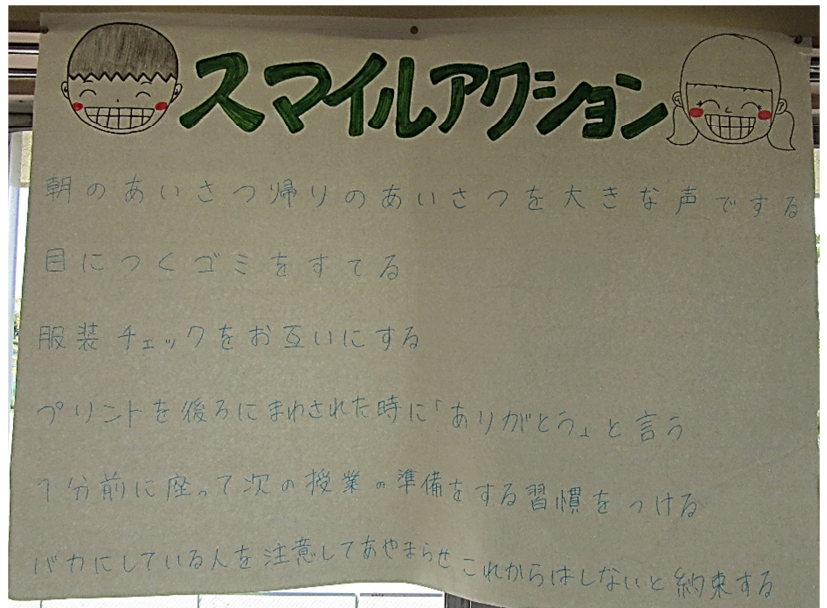 スマイルアクション
朝のあいさつ帰りのあいさつを大きな声でする
目につくゴミをすてる
服装チェックをお互いにする
プリントを後ろにまわされた時に「ありがとう」と言う
1分前に座って次の授業の準備をする習慣をつける
バカにしている人を注意してあやまらせこれからはしないと約束する